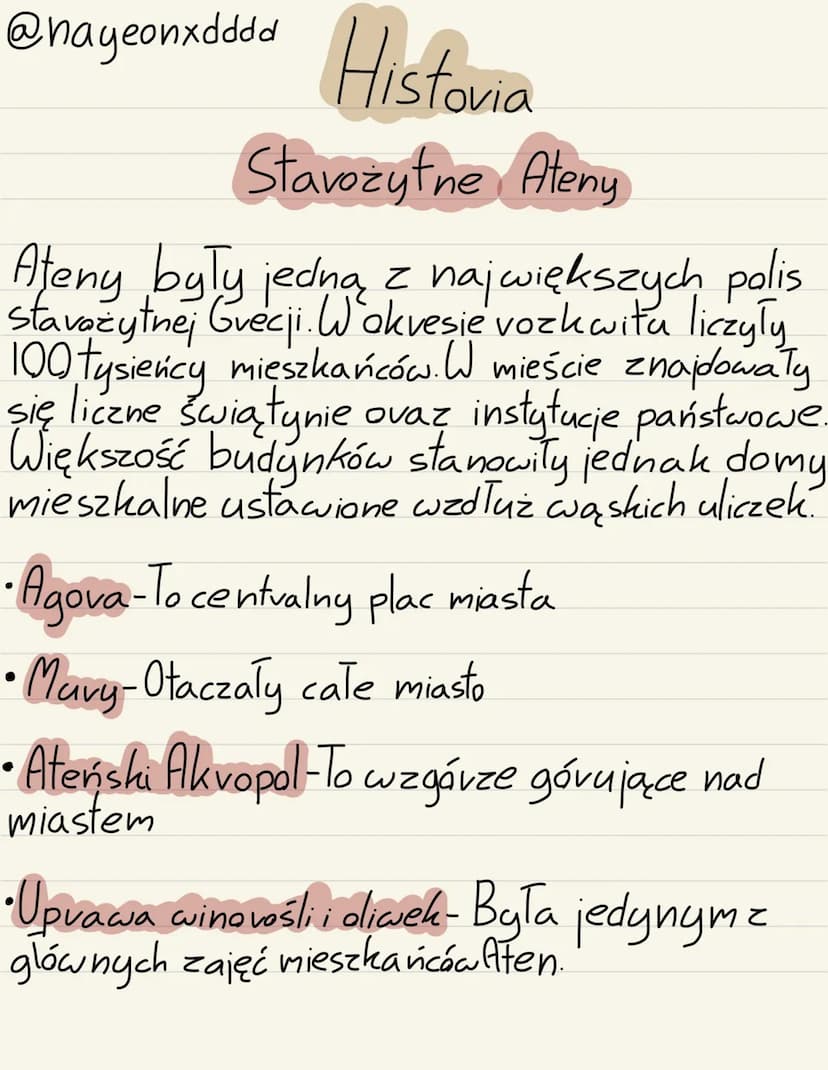 @nayeonxdddd
Historia
Starożytne Ateny
Ateny były jedną z największych polis
starożytnej Grecji. W okresie rozkwitu liczyły
100 tysieńcy mieszkańców. W mieście znajdowały
się liczne świątynie oraz instytucje państwowe.
Większość budynków stanowiły jednak domy
mieszkalne ustawione wzdłuż wąskich uliczek.
• Agora - To centralny plac miasta
• Mury - Otaczały całe miasto
• Ateński Akropol - To wzgórze górujące nad
miastem
• Uprawa winorośli i oliwek - Była jedynym z
głównych zajęć mieszkańców Aten.